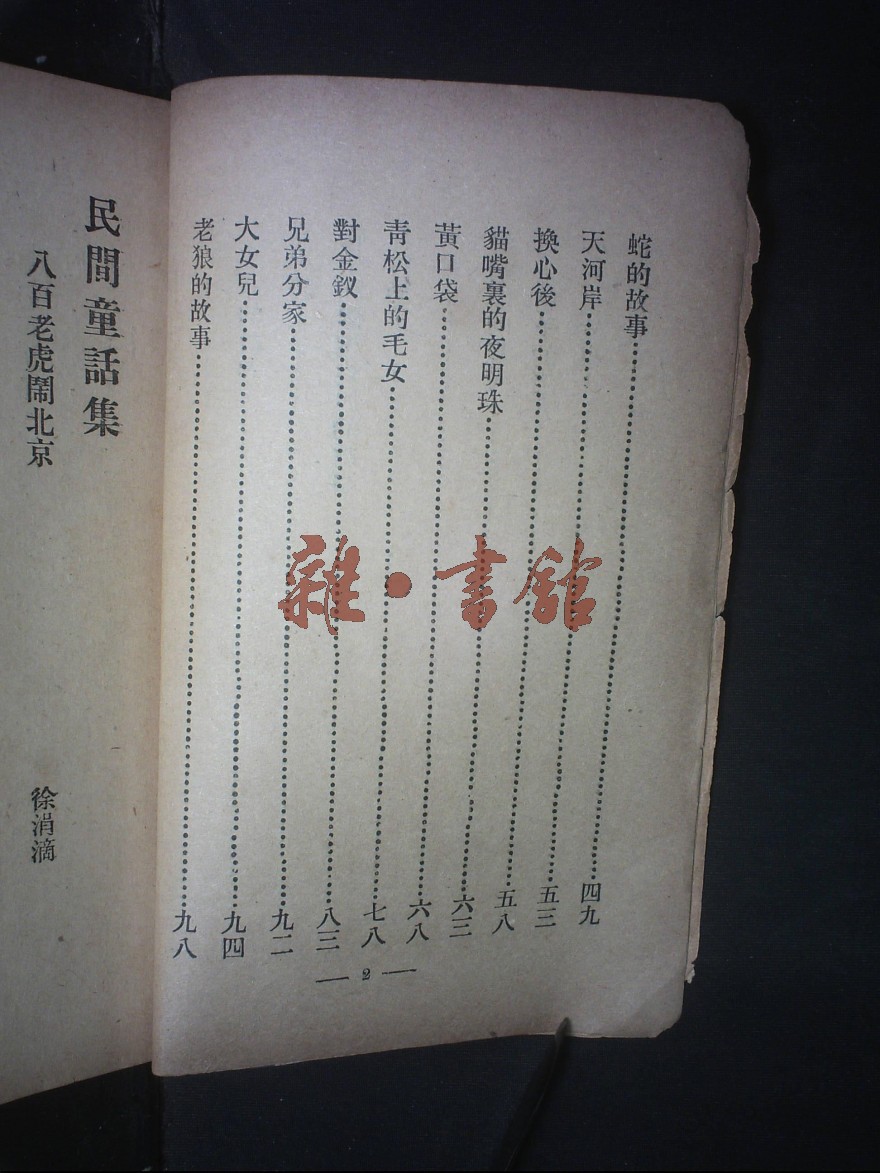 蛇的故事……四九
天河岸……五三
換心後……五八
貓嘴裏的夜明珠……六三
黃口袋……六八
靑松上的毛女……七八
對金釵……八三
兄弟分家……九二
大女兒……九四
老狼的故事……九八
— 2 —
民間童話集
八百老虎鬧北京
徐涓滴
雜·書館